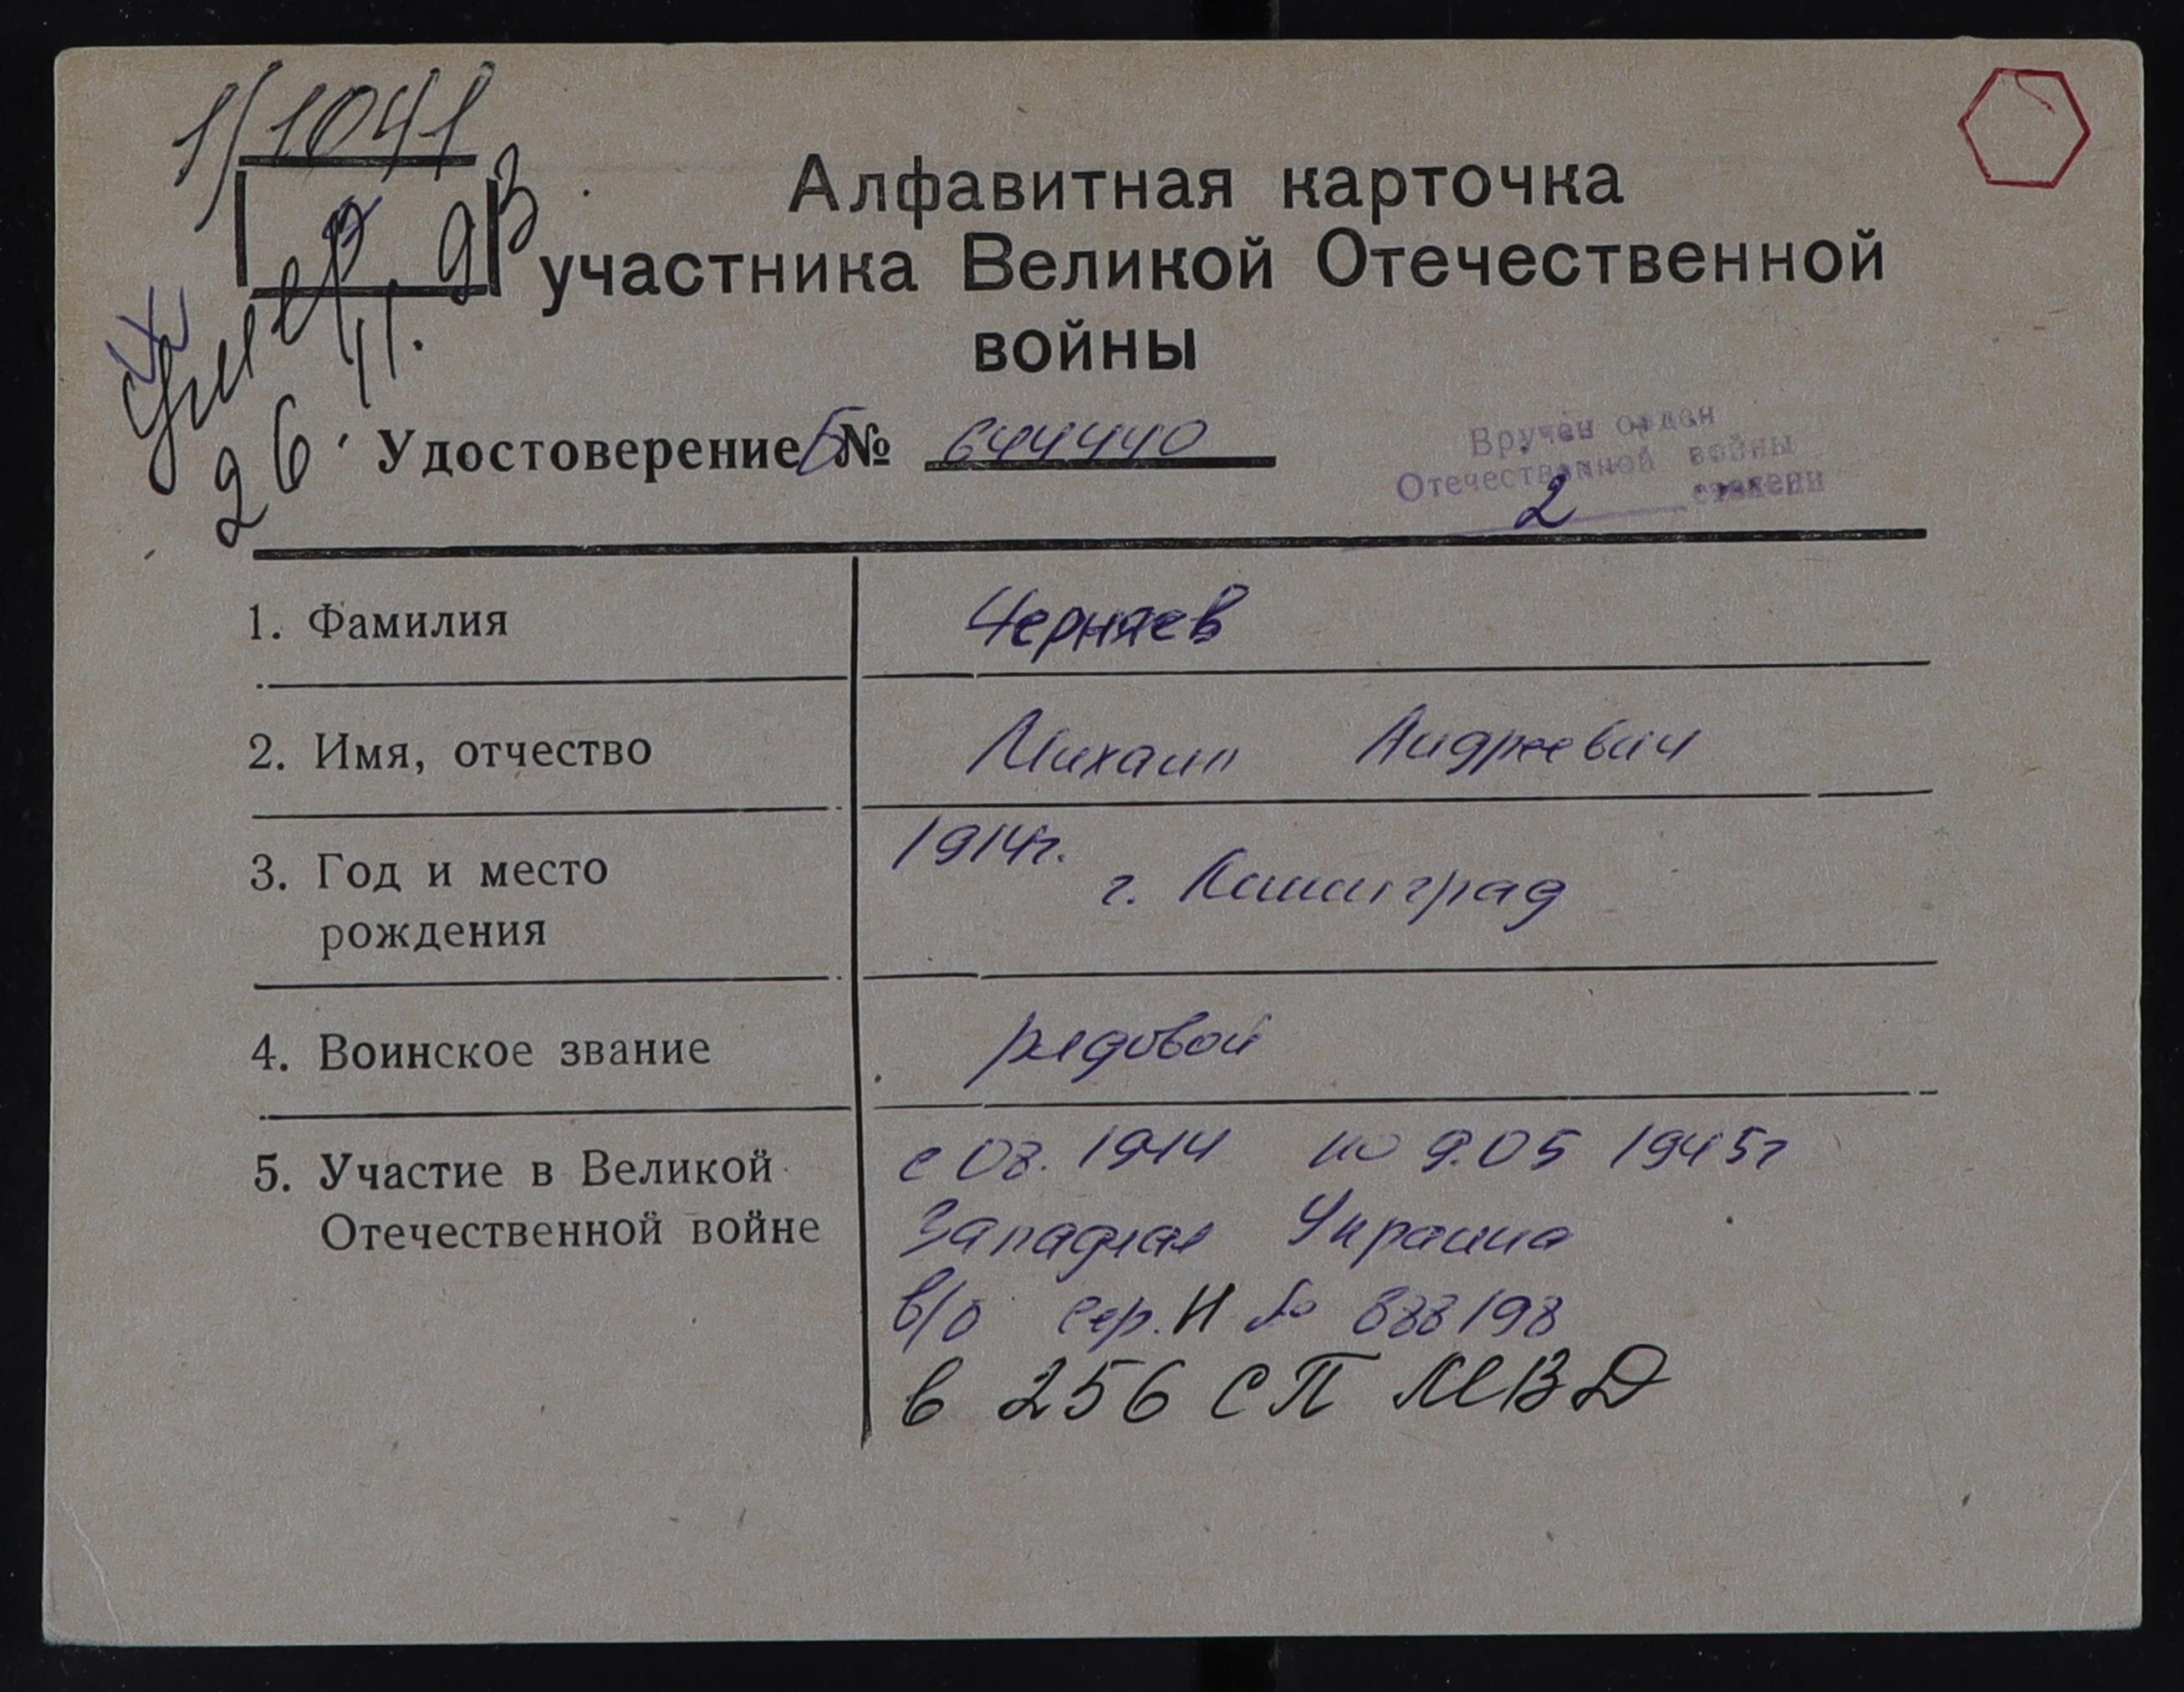 1/1041
Умер
26.11.93
Алфавитная карточка
участника Великой Отечественной
войны
Удостоверение Б № 644440
Вручен орден
Отечественной войны
2 степени
1. Фамилия Черняев
2. Имя, отчество Михаил Андреевич
3. Год и место 1914г.
рождения г. Ленинград
4. Воинское звание рядовой
5. Участие в Великой с 08. 1944 по 9.05 1945г
Отечественной войне Западная Украина
в/б сер. Н № 888198
в 256 СП МВД